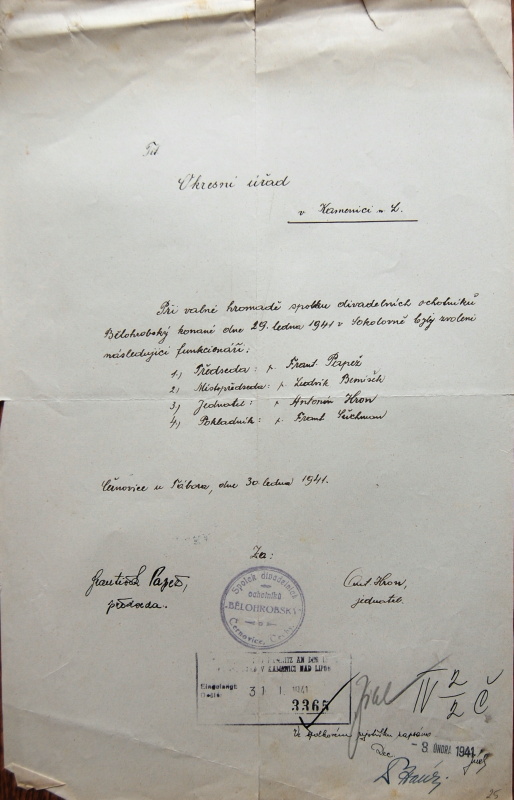 Okresní úřad
v Kamenici n. L.
Při valné hromadě spolku divadelních ochotníků
Bělohrobský konané dne 29. ledna 1941 v Sokolovně byly zvoleni
následující funkcionáři:
1) Předseda: p. Frant Papež
2) Místopředseda: p. Ludvík
3) Jednatel: p. Antonín Hron
4) Pokladník: p. Frant
Černovice u Tábora, dne 30 ledna 1941.
Za:
František Papež,
předseda.
Ant. Hron,
jednatel.
Spolek divadelních
ochotníků
BĚLOHROBSKÝ
Černovice
AN DER
V KAMENICI NAD LIPOU
Eingelangt
Došlo:
31 I 1941
3365
IV 2/2 Č
Ve spolkovém rejstříku
- 8 ÚNORA 1941
25